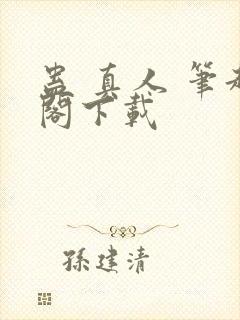 蠱真人 筆
閣下載
孫建清